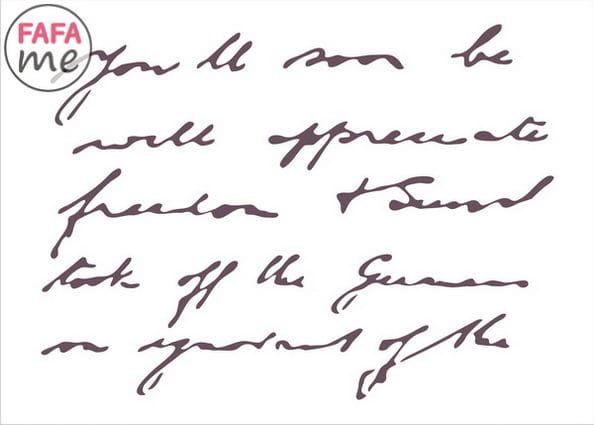 FAFA
me
You'll soon be
will appreciate
freedom +
took off the Germans
or ignorant of the